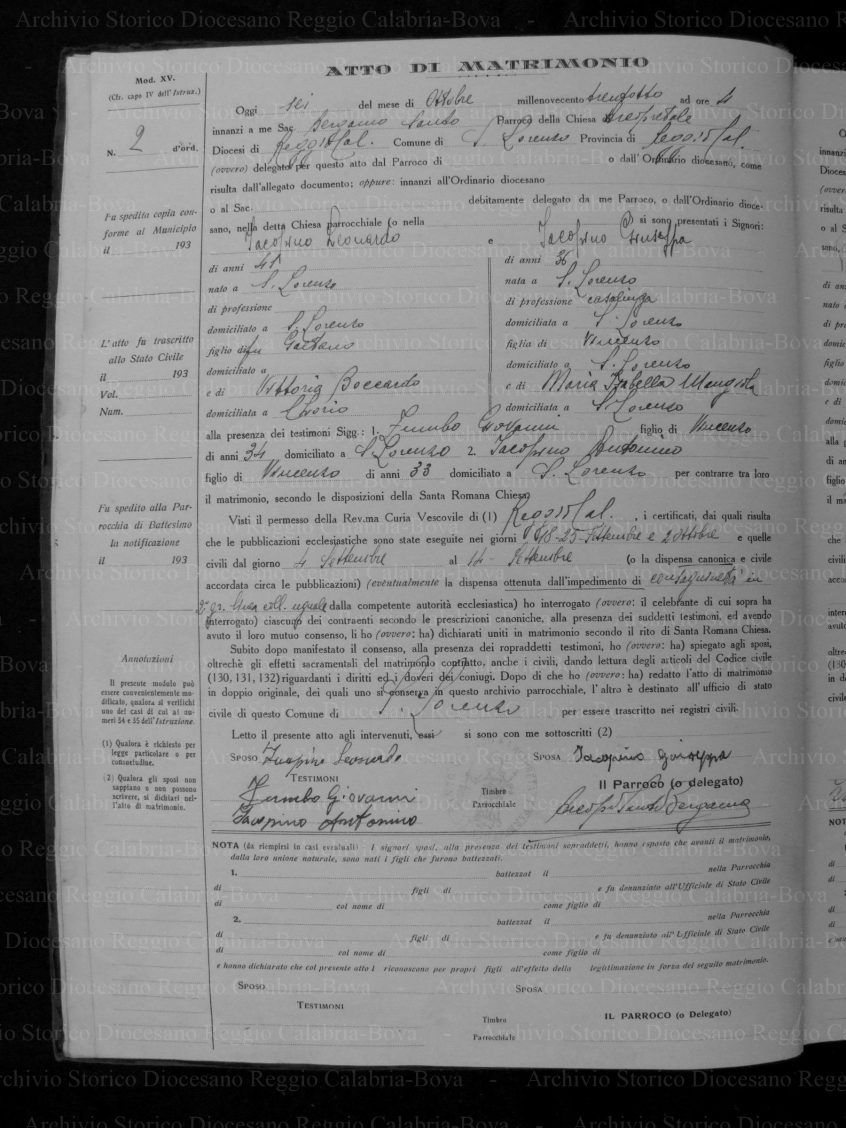 Archivio Storico Diocesano Reggio Calabria-Bova
ATTO DI MATRIMONIO
Mod. XV.
(Cfr. capo IV dell'Istruz.)
N. 2 d'ord.
Fu spedita copia con-
forme al Municipio
il 193
L'atto fu trascritto
allo Stato Civile
il 193
Vol.
Num.
Fu spedito alla Par-
rocchia di Battesimo
la notificazione
il 193
Annotazioni
Il presente modulo può
essere convenientemente mo-
dificato, qualora si verifichi
uno dei casi di cui ai nu-
meri 34 e 35 dell'Istruzione.
(1) Qualora è richiesto per
legge particolare o per
consuetudine.
(2) Qualora gli sposi non
sappiano o non possono
scrivere, si dichiari nel-
l'atto di matrimonio.
Oggi sei del mese di Ottobre millenovecento trentotto ad ore 4
innanzi a me Sac. Bergamo Santo Parroco della Chiesa di
Diocesi di Reggio Cal. Comune di S. Lorenzo Provincia di Reggio Cal.
(ovvero) delegato per questo atto dal Parroco di o dall'Ordinario diocesano, come
risulta dall'allegato documento; oppure: innanzi all'Ordinario diocesano
o al Sac. debitamente delegato da me Parroco, o dall'Ordinario dioce-
sano, nella detta Chiesa parrocchiale (o nella ) si sono presentati i Signori:
Iacopino Leonardo e Iacopino Giuseppa
di anni 45
nato a S. Lorenzo
di professione
domiciliato a S. Lorenzo
figlio di fu Gaetano
domiciliato a
e di Vittoria Boccardo
domiciliata a Chorio
di anni 36
nata a S. Lorenzo
di professione casalinga
domiciliata a S. Lorenzo
figlia di Vincenzo
domiciliato a S. Lorenzo
e di Maria Isabella Mangiola
domiciliata a S. Lorenzo
alla presenza dei testimoni Sigg.: 1. Zumbo Giovanni figlio di Vincenzo
di anni 34 domiciliato a S. Lorenzo 2. Iacopino Antonino
figlio di Vincenzo di anni 33 domiciliato a S. Lorenzo per contrarre tra loro
il matrimonio, secondo le disposizioni della Santa Romana Chiesa.
Visti il permesso della Rev.ma Curia Vescovile di (1) Reggio Cal. , i certificati, dai quali risulta
che le pubblicazioni ecclesiastiche sono state eseguite nei giorni 18-25 Settembre e 2 Ottobre e quelle
civili dal giorno 4 Settembre al 14 Settembre (o la dispensa canonica e civile
accordata circa le pubblicazioni) (eventualmente la dispensa ottenuta dall'impedimento di consanguineità in
2° gr. linea coll. uguale dalla competente autorità ecclesiastica) ho interrogato (ovvero: il celebrante di cui sopra ha
interrogato) ciascuno dei contraenti secondo le prescrizioni canoniche, alla presenza dei suddetti testimoni, ed avendo
avuto il loro mutuo consenso, li ho (ovvero: ha) dichiarati uniti in matrimonio secondo il rito di Santa Romana Chiesa.
Subito dopo manifestato il consenso, alla presenza dei sopraddetti testimoni, ho (ovvero: ha) spiegato agli sposi,
oltrechè gli effetti sacramentali del matrimonio contratto, anche i civili, dando lettura degli articoli del Codice civile
(130, 131, 132) riguardanti i diritti ed i doveri dei coniugi. Dopo di che ho (ovvero: ha) redatto l'atto di matrimonio
in doppio originale, dei quali uno si conserva in questo archivio parrocchiale, l'altro è destinato all'ufficio di stato
civile di questo Comune di S. Lorenzo per essere trascritto nei registri civili.
Letto il presente atto agli intervenuti, essi si sono con me sottoscritti (2)
SPOSO Iacopino Leonardo SPOSA Iacopino Giuseppa
TESTIMONI
Zumbo Giovanni
Iacopino Antonino
Timbro
Parrocchiale
Il Parroco (o delegato)
NOTA (da riempirsi in casi eventuali) - I signori sposi, alla presenza dei testimoni sopraddetti, hanno esposto che avanti il matrimonio,
dalla loro unione naturale, sono nati i figli che furono battezzati.
1. battezzat il nella Parrocchia
di figli di e fu denunziato all'Ufficiale di Stato Civile
di col nome di come figlio di
2. battezzat il nella Parrocchia
di figli di e fu denunziato all'Ufficiale di Stato Civile
di col nome di come figlio di
e hanno dichiarato che col presente atto l riconoscono per propri figli all'effetto della legittimazione in forza del seguito matrimonio.
SPOSO SPOSA
TESTIMONI
Timbro
Parrocchiale
IL PARROCO (o Delegato)